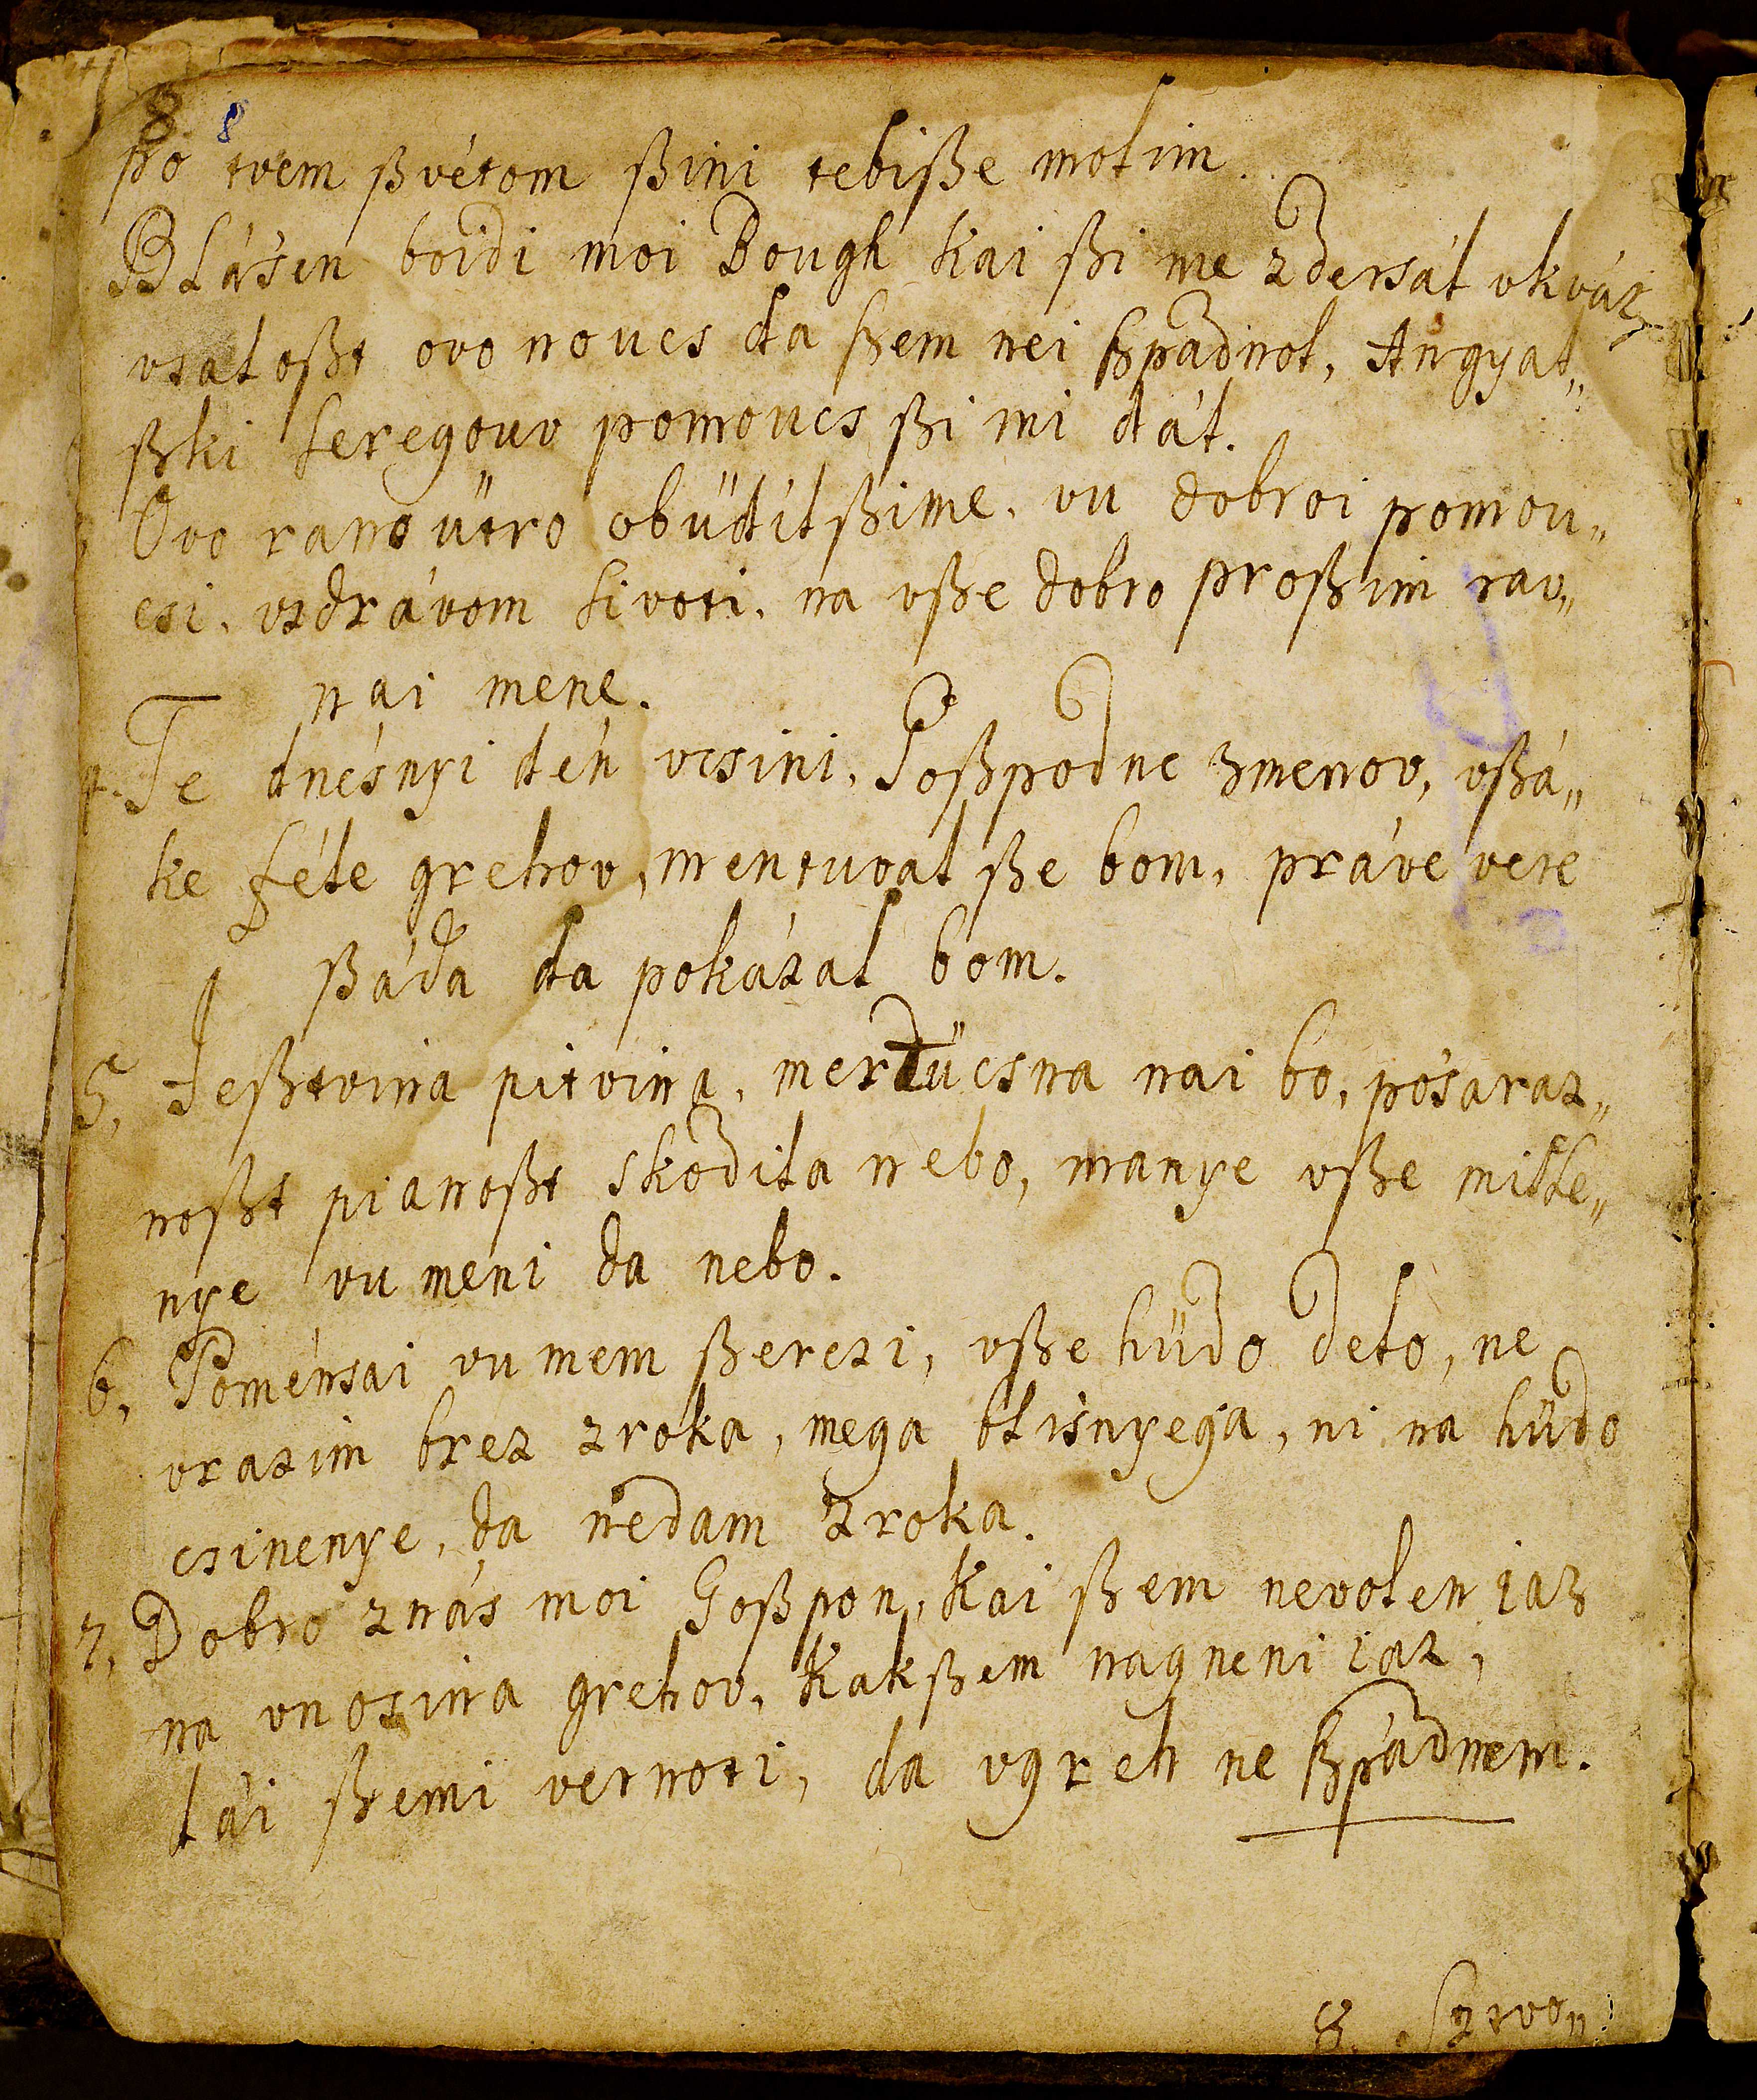 8. 8
po tvem ßvétom ßini tebiße molim.
Blásen boidi moi Bough kai ßi me zdersál vkvár,
vsaloßt ovo noucs da ßem nei ßpadnol, Angyal„
ßki seregouv pomoucs ßi mi dál.
Ovo rano ütro obüdilßime. vu dobroi pomou„
csi. vzdrávom sivoti. na vße dobro proßim rav„
nai mene.
4. Te dnésnyi dén vcsini, Goßpodne zmenov, vßá„
ke féle grehov, mentuval ße bom, práve vere
ßáda da pokázal bom.
5, Jeßtvina pitvina, mertücsna nai bo, pósaraz„
noßt pianoßt skodila nebo, manye vße misle„
nye vu meni da nebo.
6, Poménsai vu mem ßerczi, vße hüdo delo, ne
vrazim brez zroka, mega blisnyega, ni na hüdo
csinenye, da nedam zroka.
7, Dobro znás moi Goßpon, kai ßem nevolen jaz
na vnosina grehov, kakßem nagneni iaz,
dái ßemi vernoti, da vgreh ne ßpádnem.
8.